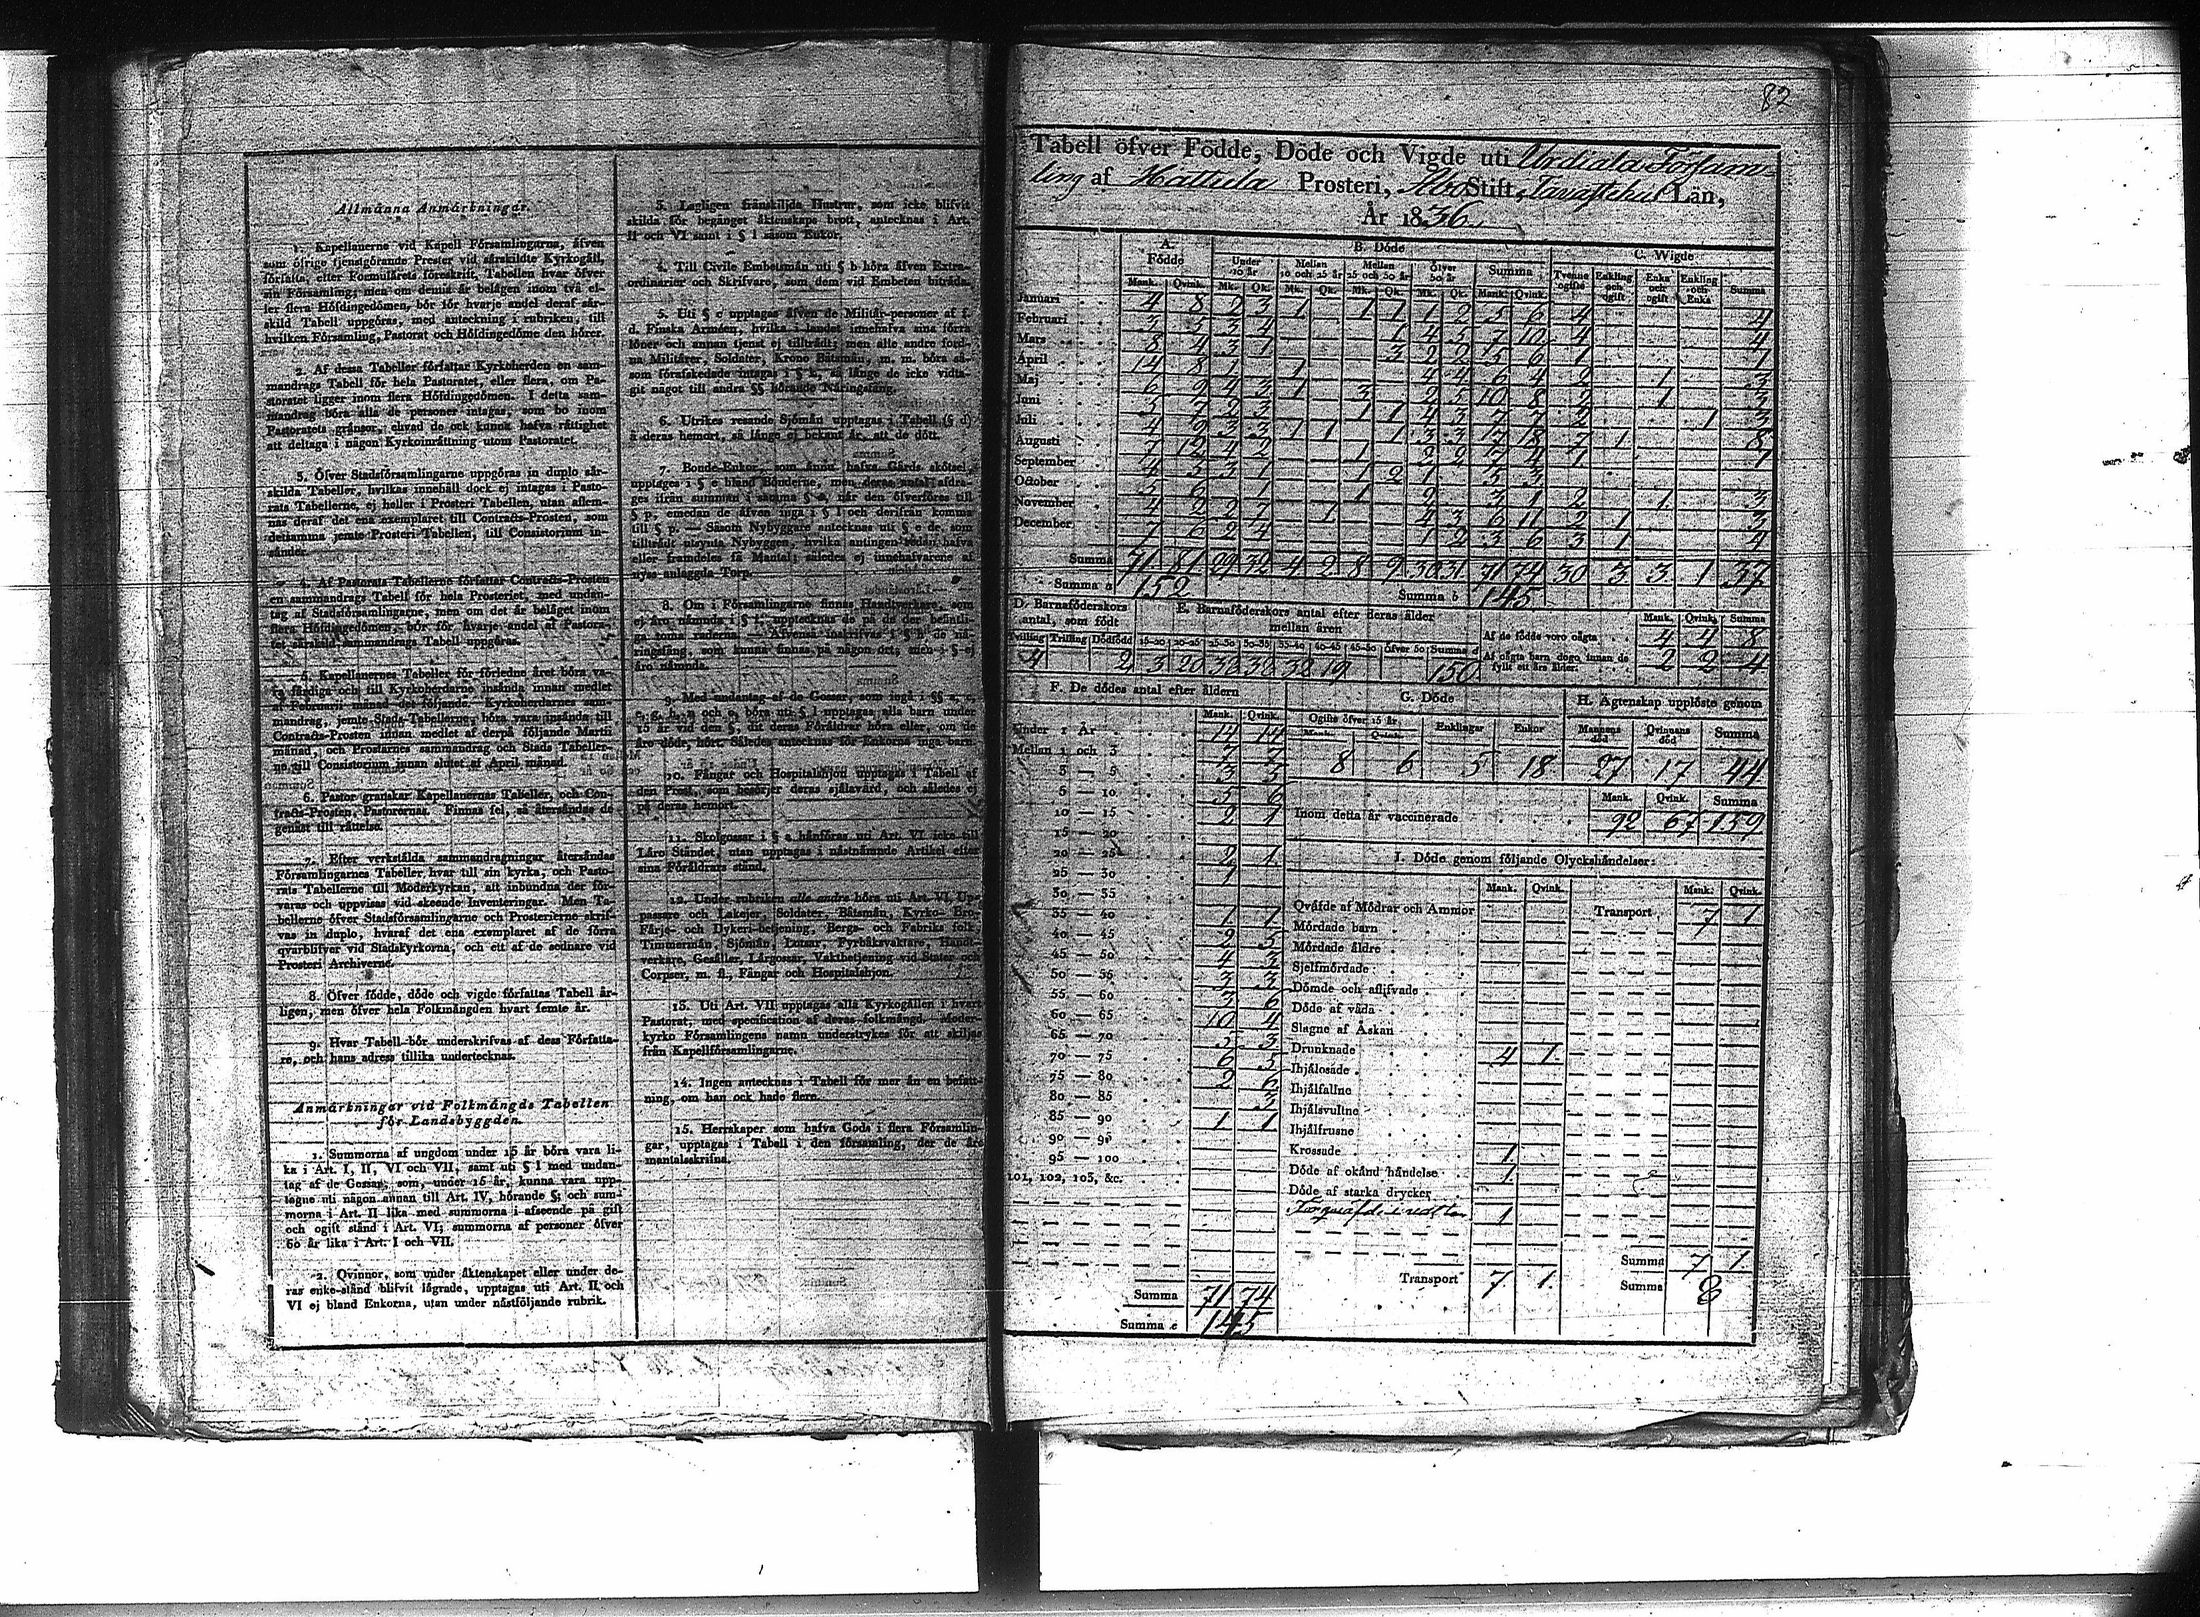 Allmänna Anmärkningar.
1. Kapellanerne vid Kapell Församlingarna, äfven
som öfrige tjenstgörande Prester vid särskildte Kyrkogäll,
författa, efter Formulärets föreskrift, Tabellen hvar öfver
sin Församling; men om denna är belägen inom två el-
ler flera Höfdingedömen, bör för hvarje andel deraf sär-
skild Tabell uppgöras, med anteckning i rubriken, till
hvilken Församling, Pastorat och Höfdingedöme den hörer.
2. Af dessa Tabeller författar Kyrkoherden en sam-
mandrags Tabell för hela Pastoratet, eller flera, om Pa-
storatet ligger inom flera Höfdingedömen. I detta sam-
mandrag böra alla de personer intagas, som bo inom
Pastoratets gränser, ehvad de ock kunna hafva rättighet
att deltaga i någon Kyrkoinrättning utom Pastoratet.
3. Öfver Stadsförsamlingarne uppgöras in duplo sär-
skilda Tabeller, hvilkas innehåll dock ej intages i Pasto-
rats Tabellerne, ej heller i Prosteri Tabellen, utan aflem-
nas deraf det ena exemplaret till Contracts-Prosten, som
detsamma jemte Prosteri-Tabellen, till Consistorium in-
sänder.
4. Af Pastorats Tabellerne författar Contracts-Prosten
en sammandrags Tabell för hela Prosteriet, med undan-
tag af Stadsförsamlingarne, men om det är beläget inom
flera Höfdingedömen, bör för hvarje andel af Pastora-
tet särskild sammandrags Tabell uppgöras.
5. Kapellanernes Tabeller för förledne året böra va-
ra färdiga och till Kyrkoherdarne insända innan medlet
af Februarii månad det följande. Kyrkoherdarnes sam-
mandrag, jemte Stads-Tabellerne, böra vara insända till
Contracts-Prosten innan medlet af derpå följande Martii
månad, och Prostarnes sammandrag och Stads Tabeller-
ne till Consistorium innan slutet af April månad.
6. Pastor granskar Kapellanernas Tabeller, och Con-
tracts-Prosten, Pastorernas. Finnas fel, så återsändas de
genast till rättelse.
7. Efter verkställda sammandragningar återsändas
Församlingarnes Tabeller hvar till sin kyrka, och Pasto-
rats Tabellerne till Moderkyrkan, att inbundna der för-
varas och uppvisas vid skeende Inventeringar. Men Ta-
bellerne öfver Stadsförsamlingarne och Prosterierne skrif-
vas in duplo, hvaraf det ena exemplaret af de förra
qvarblifver vid Stadskyrkorna, och ett af de sednare vid
Prosteri Archiverne.
8. Öfver födde, döde och vigde författas Tabell år-
ligen, men öfver hela Folkmängden hvart femte år.
9. Hvar Tabell bör underskrifvas af dess Författa-
re, och hans adress tillika undertecknas.
Anmärkningar vid Folkmängds Tabellen
för Landsbyggden.
1. Summorna af ungdom under 15 år böra vara li-
ka i Art. I, II, VI och VII, samt uti § l med undan-
tag af de Gossar, som, under 15 år, kunna vara upp-
tagne uti någon annan till Art. IV, hörande §; och sum-
morna i Art. II lika med summorna i afseende på gift
och ogift stånd i Art. VI; summorna af personer öfver
60 år lika i Art. I och VII.
2. Qvinnor, som under äktenskapet eller under de-
ras enke-stånd blifvit lägrade, upptagas uti Art. II och
VI ej bland Enkorna, utan under nästföljande rubrik.
3. Lagligen frånskiljda Hustrur, som icke blifvit
skilda för begånget äktenskaps brott, antecknas i Art.
II och VI samt i § l såsom Enkor.
4. Till Civile Embetsmän uti § b höra äfven Extra-
ordinarier och Skrifvare, som dem vid Embeten biträda.
5. Uti § c upptagas äfven de Militär-personer af f.
d. Finska Arméen, hvilka i landet innehafva sina förra
löner och annan tjenst ej tillträdt; men alle andre ford-
na Militärer, Soldater, Krono Båtsmän, m. m. böra så-
som förafskedade intagas i § k, så länge de icke vidta-
git något till andra §§ hörande Näringsfång.
6. Utrikes resande Sjömän upptagas i Tabell (§ d)
å deras hemort, så länge ej bekant är, att de dött.
7. Bonde-Enkor, som ännu hafva Gårds skötsel,
upptages i § e bland Bönderne, men deras antal afdra-
ges ifrån summan i samma § e, när den öfverföres till
§ p, emedan de äfven ingå i § l och derifrån komma
till § p. — Såsom Nybyggare antecknas uti § e de, som
tillträdt utsynta Nybyggen, hvilka antingen redan hafva
eller framdeles få Mantal; således ej innehafvarene af
nyss anlaggda Torp.
8. Om i Församlingarne finnas Handtverkare, som
ej äro nämnda i § f, upptecknas de på de der befintli-
ga toma raderna. — Äfvenså inskrifvas i § h de nä-
ringsfång, som kunna finnas på någon ort, men i § ej
äro nämnda.
10. Fångar och Hospitalshjon upptagas i Tabell af
den Prest, som besörjer deras själavård, och således ej
på deras hemort.
11. Skolgossar i § a hänföras uti Art. VI icke till
Läro Ståndet, utan upptagas i nästnämnde Artikel efter
sina Föräldrars stånd.
12. Under rubriken alle andre höra uti Art. VI, Up-
passare och Lakejer, Soldater, Båtsmän, Kyrko- Bro-
Färje- och Dykeri-betjening, Bergs- och Fabriks folk,
Timmermän, Sjömän, Lotsar, Fyrbåksvaktare, Handt-
verkare, Gesäller, Lärgossar, Vaktbetjening vid Stater och
Corpser, m. fl., Fångar och Hospitalshjon.
13. Uti Art. VII upptagas alla Kyrkogällen i hvart
Pastorat, med specification af deras folkmängd. Moder-
kyrko Församlingens namn understrykes för att skiljas
från Kapellförsamlingarne.
14. Ingen antecknas i Tabell för mer än en befatt-
ning, om han ock hade flere.
15. Herrskaper som hafva Gods i flera Församlin-
gar, upptagas i Tabell i den församling, der de äro
mantalsskrifna.
82
Tabell öfver Födde, Döde och Vigde uti Urdiala Försam-
ling af Hattula Prosteri, Åbo Stift, Tavastehus Län,
År 1836.
A. Födde B. Döde C. Wigde
Under 10 år Mellan 10 och 25 år Mellan 25 och 50 år Öfver 50 år Summa Tvenne ogifte Enkling och ogift Enka och ogift Enkling och Enka Summa
Mank. Qvink. Mk. Qk. Mk. Qk. Mk. Qk. Mk. Qk. Mank. Qvink.
Januari 4 8 2 3 1 1 1 1 2 5 6 4 4
Februari 3 5 3 4 1 4 5 7 10 4 4
Mars 8 4 3 1 3 2 2 5 6 1 1
April 14 8 1 1 4 4 6 4 2 1 3
Maj 6 9 4 3 1 3 2 5 10 8 2 1 3
Juni 5 7 2 3 1 1 4 3 7 7 2 1 3
Juli 4 9 3 3 1 1 1 3 3 7 1 8
Augusti 7 12 4 2 1 2 2 7 4 1 1
September 4 5 3 1 1 2 1 5 3
October 5 6 1 1 2 3 1 2 1 3
November 4 2 2 7 1 4 3 6 11 2 1 3
December 7 6 2 4 1 2 3 6 3 1 4
Summa 71 81 29 32 4 2 8 9 30 31 71 74 30 3 3 1 37
Summa a 152 Summa b 145
D. Barnaföderskors antal, som födt
E. Barnaföderskors antal efter deras ålder mellan åren
Mank. Qvink. Summa
Tvilling Trilling Dödfödd 15-20 20-25 25-30 30-35 35-40 40-45 45-50 öfver 50 Summa d
4 2 3 20 38 32 38 19 150
Af de födde voro oägta 4 4 8
Af oägta barn dogo innan de fyllt ett års ålder: 2 2 4
F. De dödes antal efter åldern
Mank. Qvink.
Under 1 År 14 14
Mellan 1 och 3 7 7
3 — 5 3 5
5 — 10 5 6
10 — 15 2 1
15 — 20
20 — 25 2 1
25 — 30 1
30 — 35
35 — 40 1 1
40 — 45 2 5
45 — 50 4 3
50 — 55 3 3
55 — 60 3 6
60 — 65 10 4
65 — 70 5 3
70 — 75 6 5
75 — 80 2 6
80 — 85 3
85 — 90 1 1
90 — 95
95 — 100
101, 102, 103, &c.
Summa 71 74
Summa e 145
G. Döde
Ogifte öfver 15 år Enklingar Enkor
Mank. Qvink.
8 6 5 18
H. Ägtenskap upplöste genom
Mannens död Qvinnans död Summa
27 17 44
Mank. Qvink. Summa
Inom detta år vaccinerade 92 67 159
I. Döde genom följande Olyckshändelser:
Mank. Qvink. Mank. Qvink.
Qväfde af Mödrar och Ammor Transport 7 1
Mördade barn
Mördade äldre
Sjelfmördade
Dömde och aflifvade
Döde af våda
Slagne af Åskan
Drunknade 4 1
Ihjälosade
Ihjälfallne
Ihjälsvultne
Ihjälfrusne
Krossade 1
Döde af okänd händelse 1
Döde af starka drycker
1
Summa 7 1
Transport 7 1 Summa 8